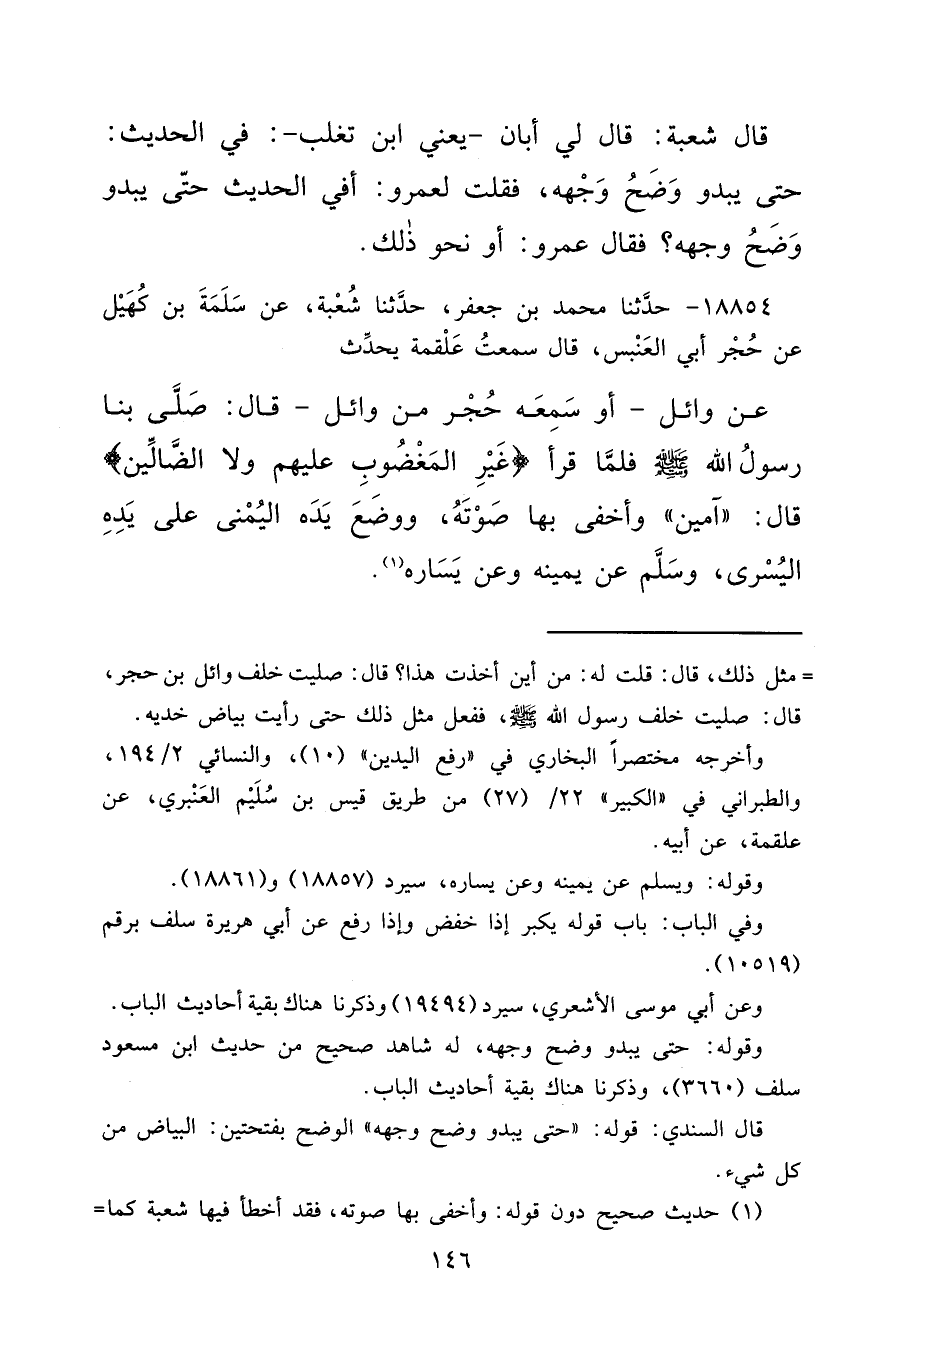 قال شعبة: قال لي أبان -يعني ابن تغلب-: في الحديث:
حتى يبدو وَضَحُ وَجْهه، فقلت لعمرو: أفي الحديث حتّى يبدو
وَضَحُ وجهه؟ فقال عمرو: أو نحو ذٰلك.
١٨٨٥٤- حدَّثنا محمد بن جعفر، حدَّثنا شُعْبة، عن سَلَمَةَ بن كُهَيْل
عن حُجْر أبي العَنْبس، قال سمعتُ عَلْقمة يحدِّث
عن وائل - أو سَمِعَه حُجْر من وائل - قال: صَلَّى بنا
رسولُ الله ﷺ فلمَّا قرأ ﴿غَيْرِ المَغْضُوبِ عليهم ولا الضَّالِّين﴾
قال: «آمين» وأخفى بها صَوْتَهُ، ووضَعَ يَدَه اليُمْنى على يَدِهِ
اليُسْرى، وسَلَّم عن يمينه وعن يَسَاره(١).
= مثل ذلك، قال: قلت له: من أين أخذت هذا؟ قال: صليت خلف وائل بن حجر،
قال: صليت خلف رسول الله ﷺ، ففعل مثل ذلك حتى رأيت بياض خديه.
وأخرجه مختصراً البخاري في «رفع اليدين» (١٠)، والنسائي ١٩٤/٢،
والطبراني في «الكبير» ٢٢/ (٢٧) من طريق قيس بن سُلَيْم العَنْبري، عن
علقمة، عن أبيه.
وقوله: ويسلم عن يمينه وعن يساره، سيرد (١٨٨٥٧) و(١٨٨٦١).
وفي الباب: باب قوله يكبر إذا خفض وإذا رفع عن أبي هريرة سلف برقم
(١٠٥١٩).
وعن أبي موسى الأشعري، سيرد (١٩٤٩٤) وذكرنا هناك بقية أحاديث الباب.
وقوله: حتى يبدو وضح وجهه، له شاهد صحيح من حديث ابن مسعود
سلف (٣٦٦٠)، وذكرنا هناك بقية أحاديث الباب.
قال السندي: قوله: «حتى يبدو وضح وجهه» الوضح بفتحتين: البياض من
كل شيء.
(١) حديث صحيح دون قوله: وأخفى بها صوته، فقد أخطأ فيها شعبة كما=
١٤٦